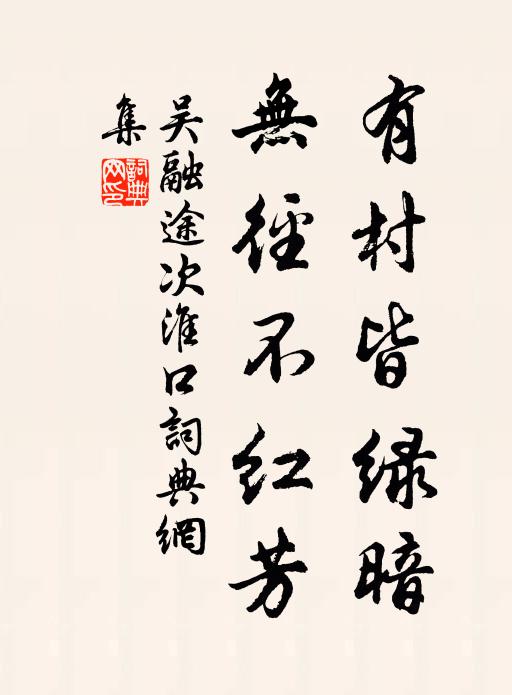 有村皆緑暗
無徑不紅芳
吴融途次淮口詞典網
集
詞典網印